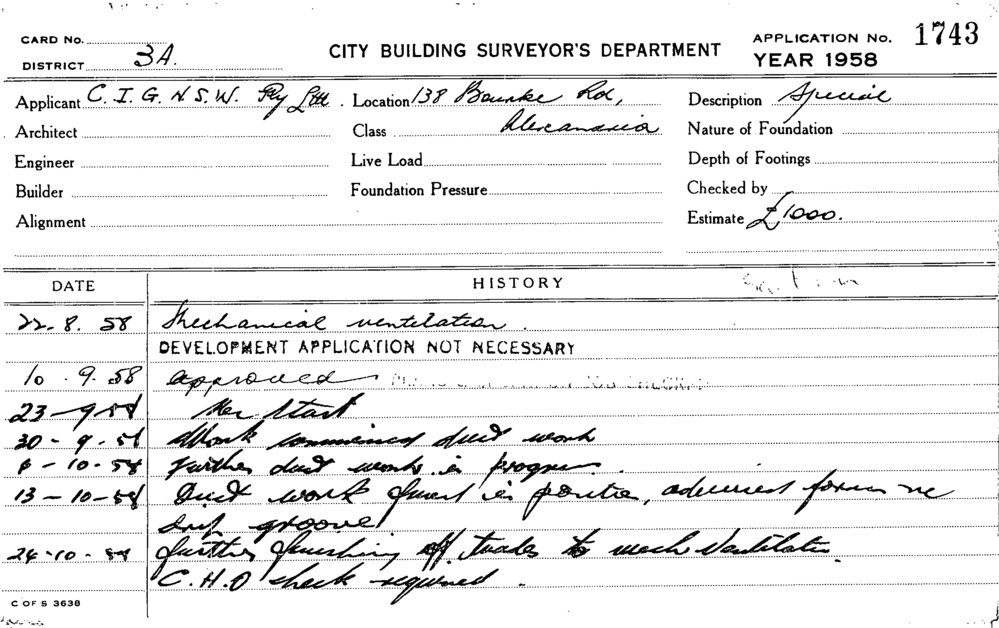 CARD No.
DISTRICT 3A.
CITY BUILDING SURVEYOR'S DEPARTMENT
APPLICATION No. 1743
YEAR 1958
Applicant C. I. G. N. S. W. Pty Ltd. Location 138 Bourke Rd, Description Special
Architect Class Alexandria Nature of Foundation
Engineer Live Load Depth of Footings
Builder Foundation Pressure Checked by
Alignment Estimate £1000.
DATE HISTORY
22. 8. 58 Mechanical ventilation.
DEVELOPMENT APPLICATION NOT NECESSARY
10. 9. 58 approved
23-9-58 No Start
30-9-58 Work commenced duct work
6-10-58 Further duct work in progress.
13-10-58 Duct work in position, advised foreman re
drip groove
24-10-58 further finishing off trades to mech Ventilation
C.H.O check required.
C OF S 3638